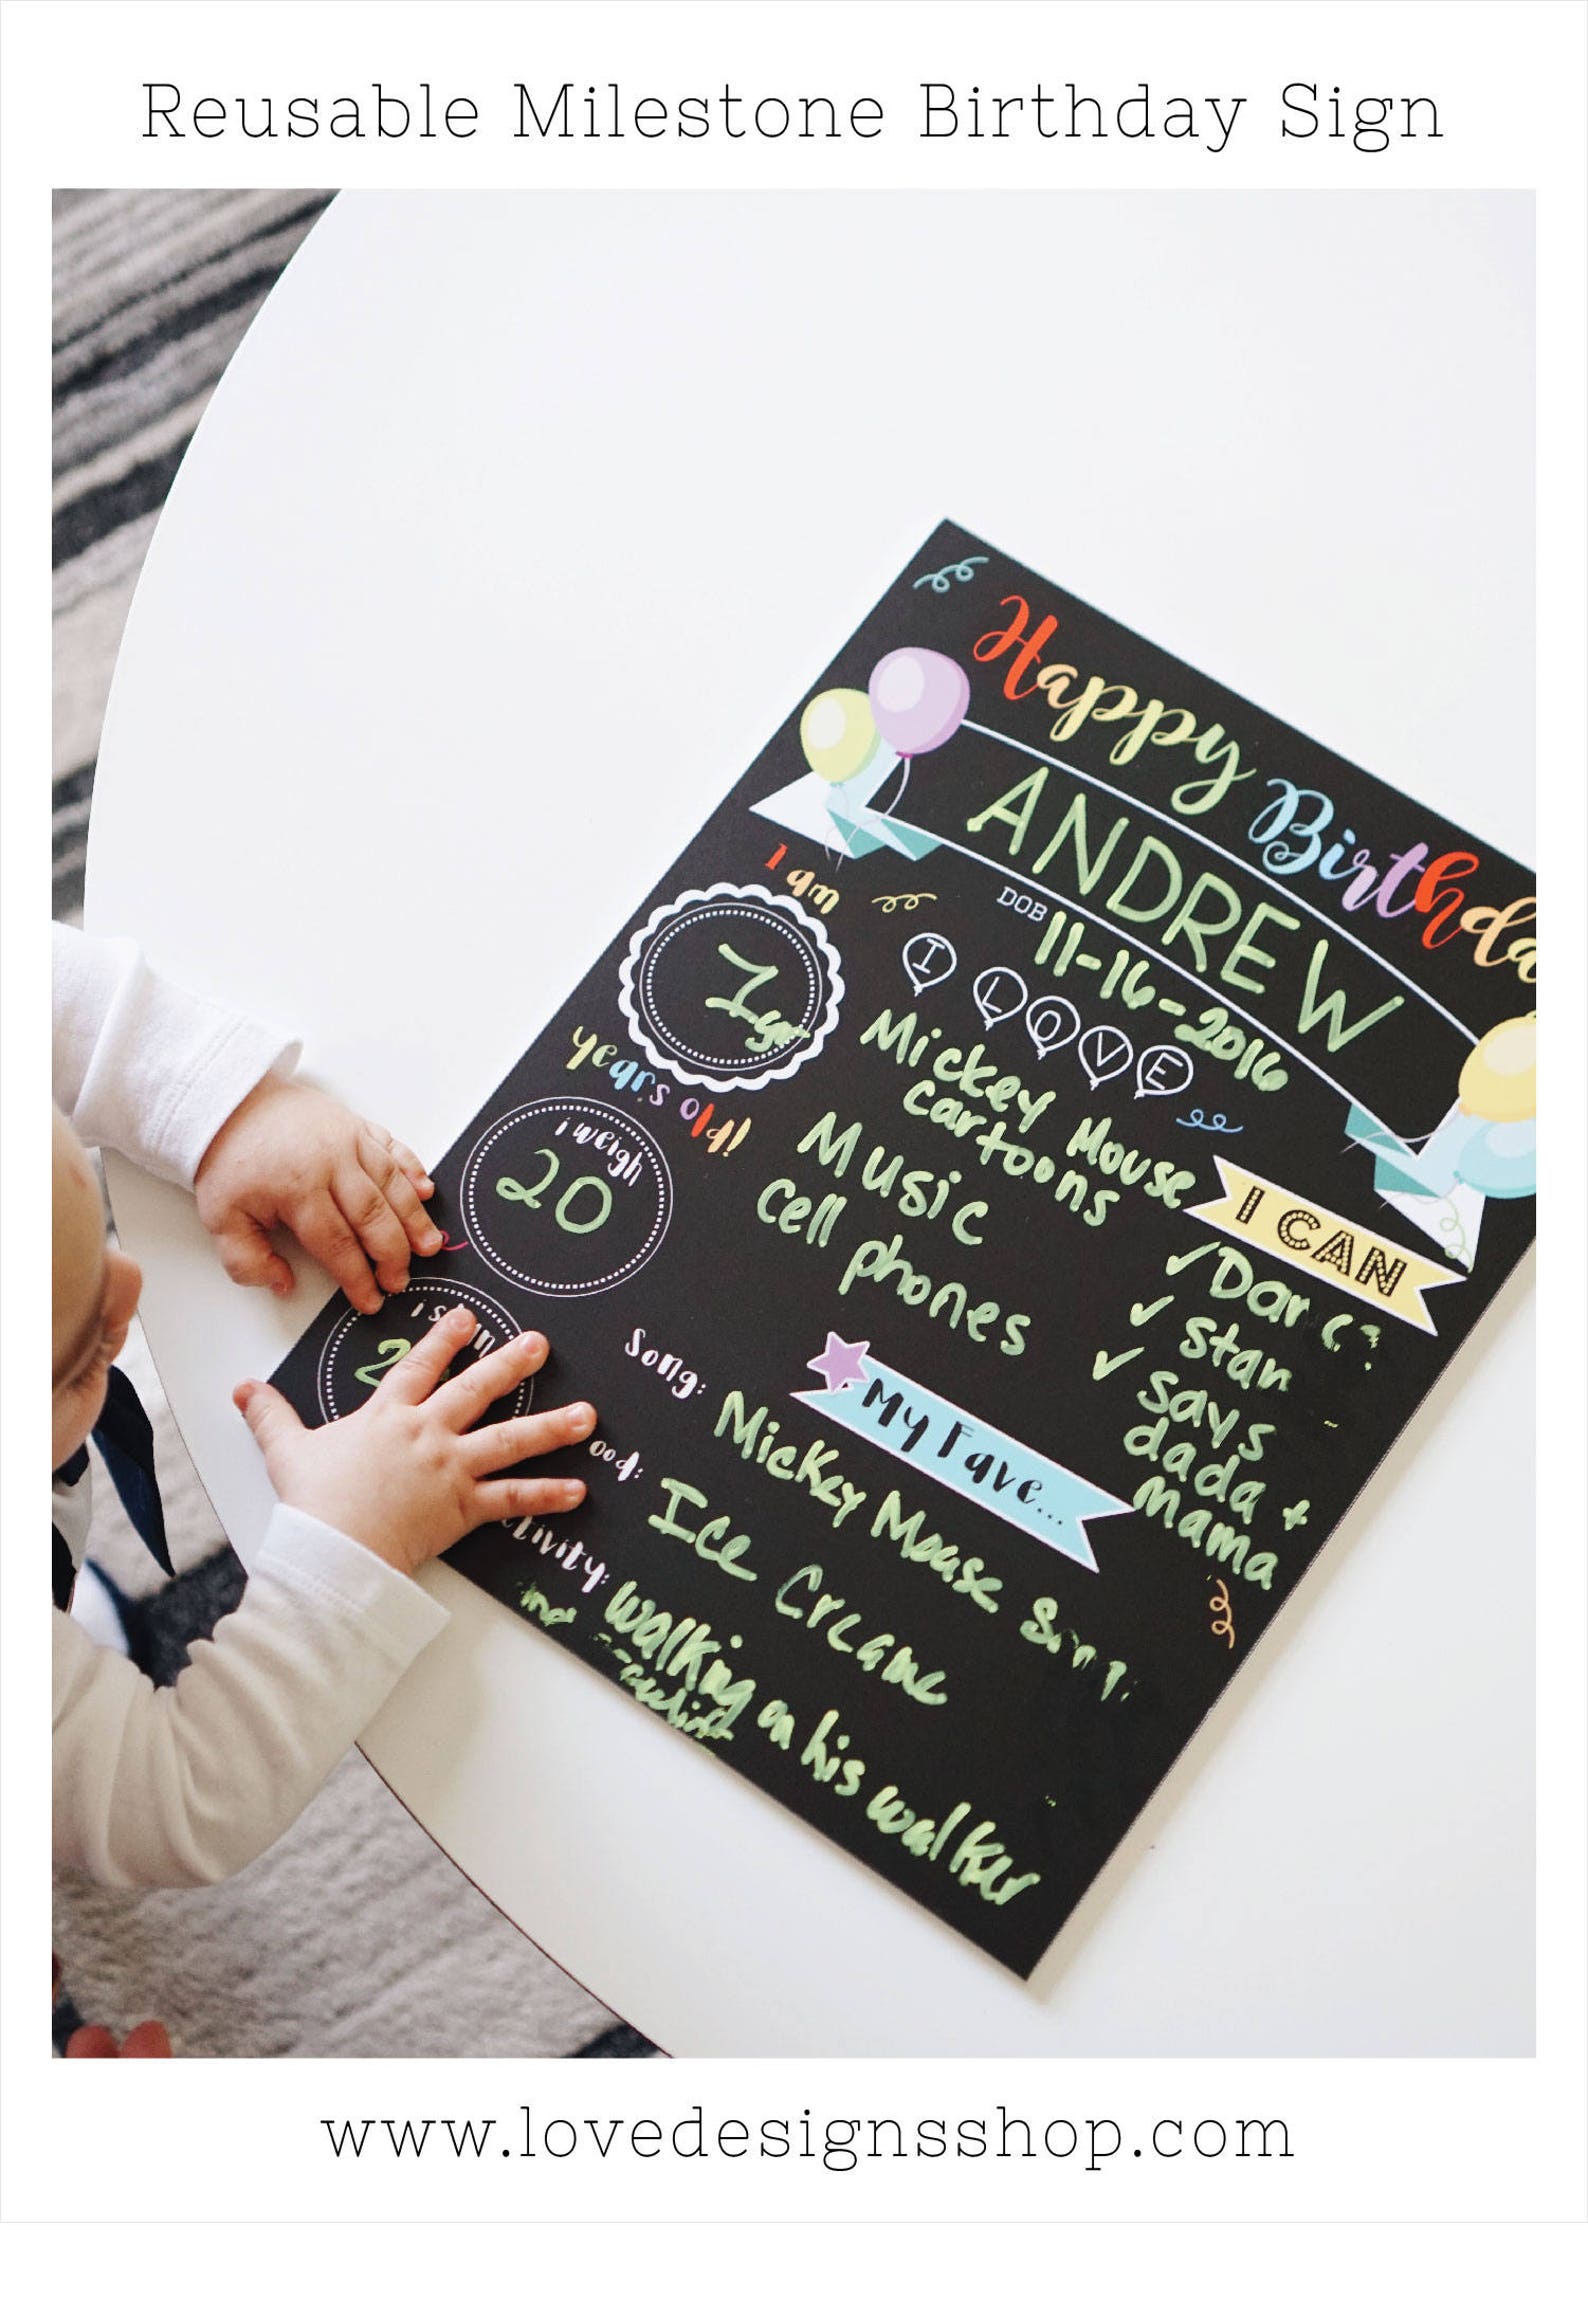 Reusable Milestone Birthday Sign
Happy Birthda
ANDREW
DOB 11-16-2016
I am
1 yr
years old!
i weigh
20
I LOVE
Mickey Mouse
cartoons
Music
Cell phones
I CAN
✓
✓ Stan
✓ says
dada +
mama
My Fave...
Song: Mickey Mouse
Ice Creame
walking on his walker
www.lovedesignsshop.com